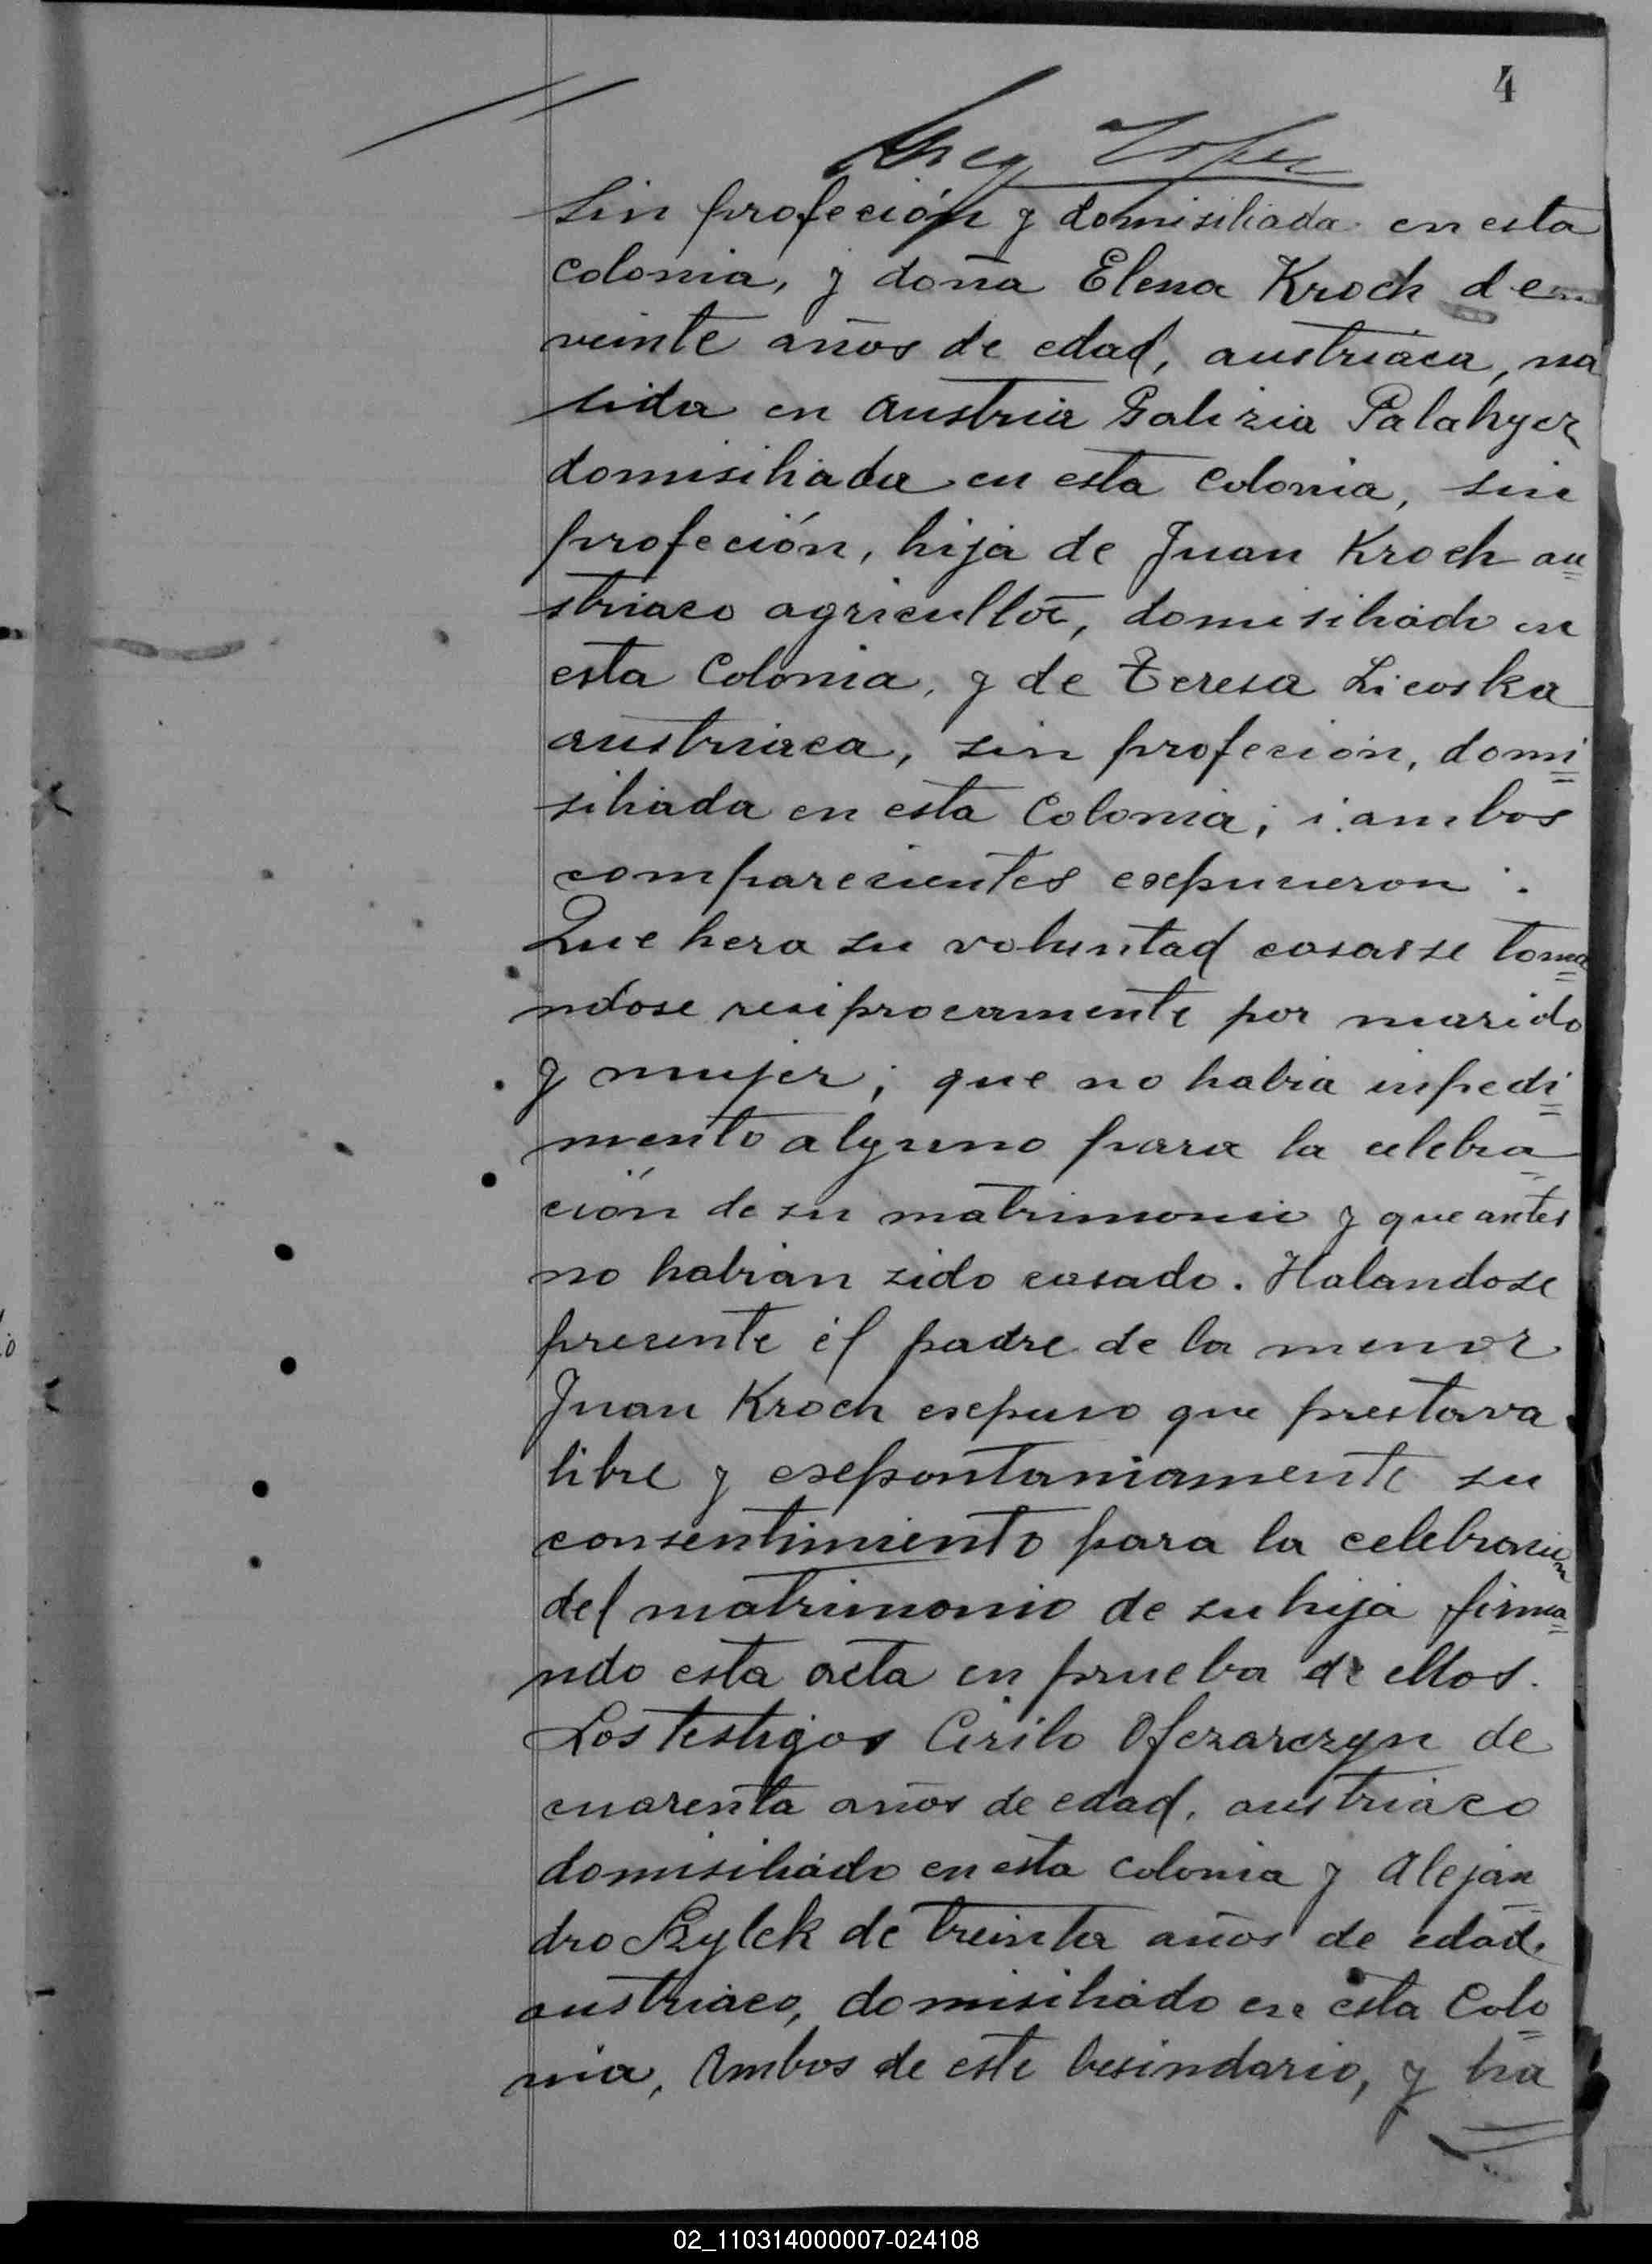 4
Sin profeción y domisiliada en esta
colonia, y doña Elena Kroch de
veinte años de edad, austriáca, na
sida en Austria Galizia Palahyez
domisiliada en esta colonia, sin
profeción, hija de Juan Kroch au
striaco agricultor, domisiliádo en
esta Colonia, y de Teresa Licoska
austriaca, sin profeción, domi
siliada en esta Colonia; i ambos
comparecientes esepucieron:
Que hera su voluntad casarse toma
ndose resiprocamente por marido
y mujer; que no habia inpedi
mento alguno para la celebra
ción de su matrimonio y que antes
no habian sido casado. Halandose
presente él padre de la menor
Juan Kroch esepuso que prestava
libre y esepontaniamente su
consentimiento para la celebrasion
del matrimonio de su hija firma
ndo esta acta en prueba de ellos.
Los testigos Cirilo Ofczarczyn de
cuarenta años de edad, austriáco
domisiliádo en esta colonia y Alejan
dro Szylek de treinta años de edad,
austriáco, domisiliádo en esta Colo
nia, Ambos de este besindario, y ha
02_110314000007-024108